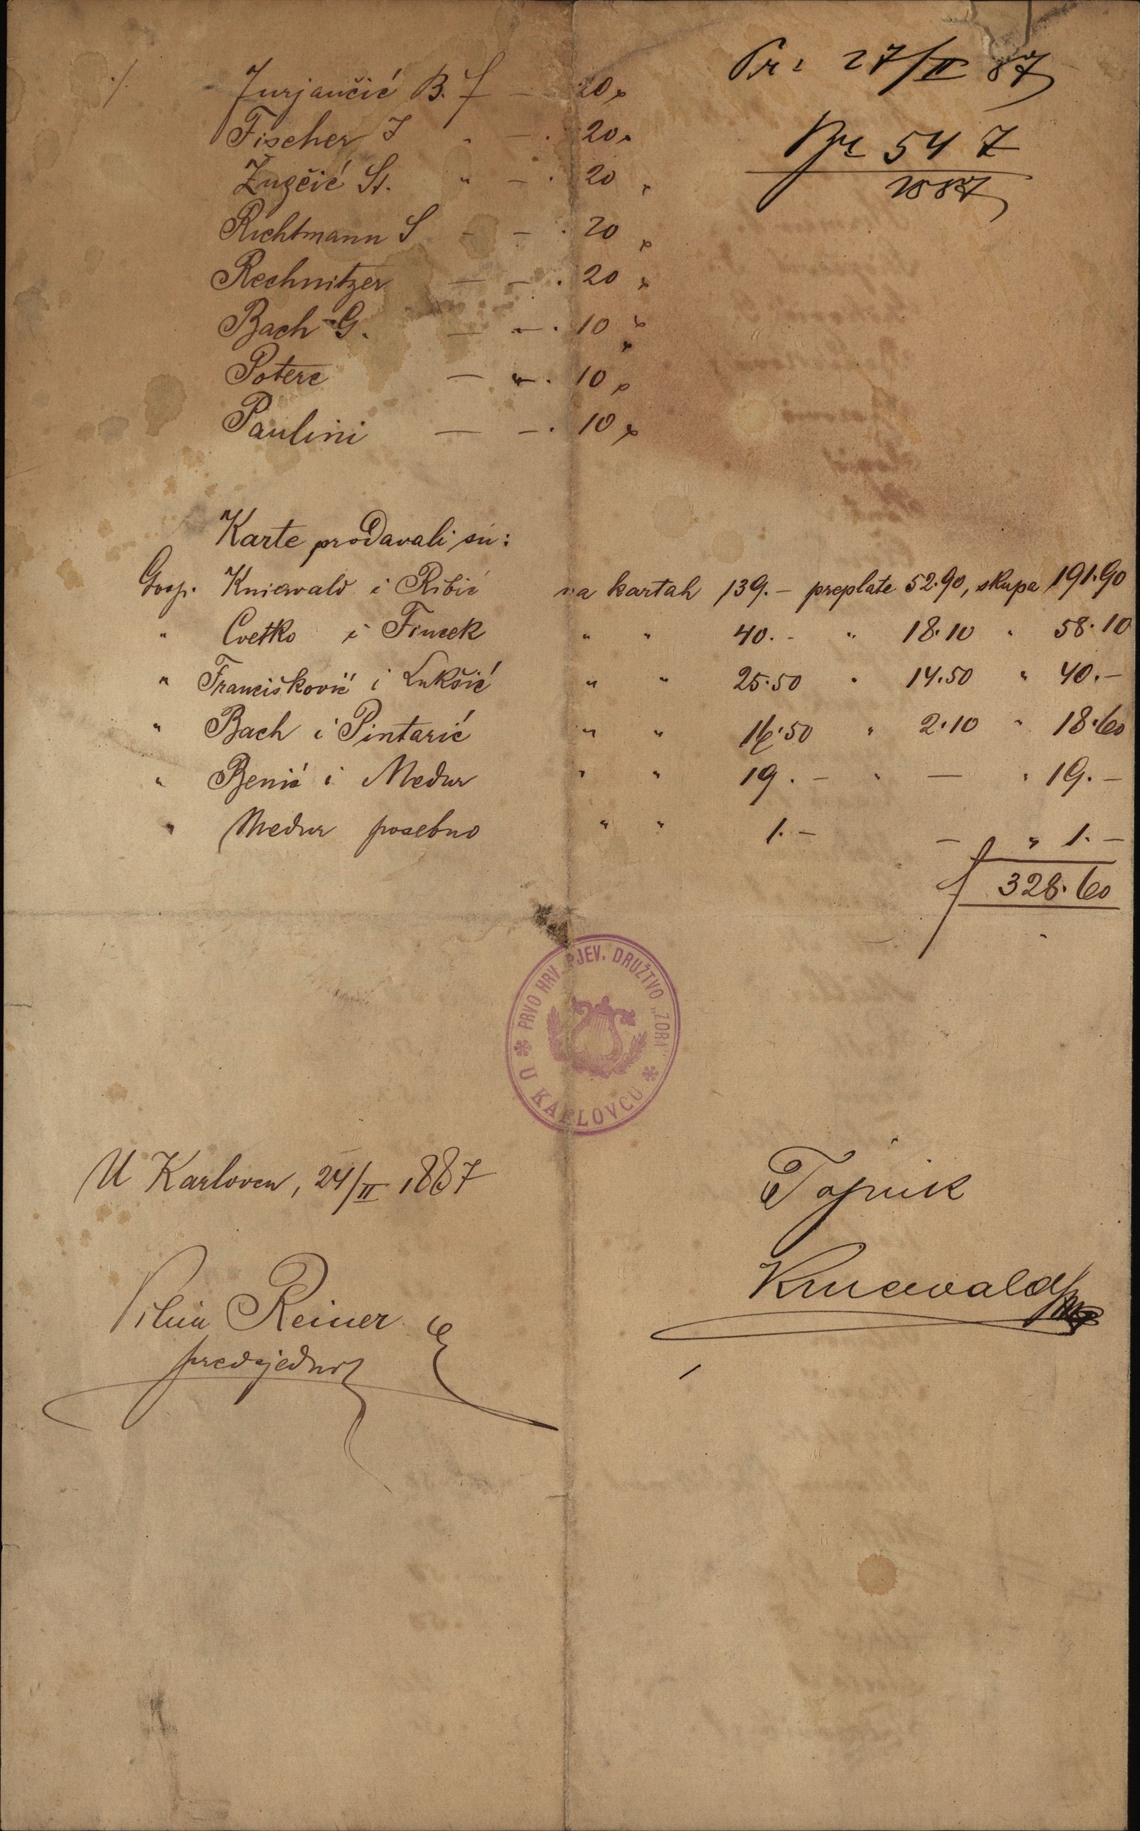 ./.
Pr: 27/II 87
Br 547
1887
Jurjančić B. f — 20 x
Fischer J " — . 20 x
Zugčić St. " — . 20 x
Richtmann S - — . 20 x
Rechnitzer — — . 20 x
Bach G. — — . 10 x
Poterc — " . 10 x
Paulini — — . 10 x
Karte prodavali su:
Gosp. Kniewald i Ribić na kartah 139.— preplate 52.90, skupa 191.90
" Cvetko i Fincek " " 40.- " 18.10 " 58.10
" Francišković i Lukšić " " 25.50 " 14.50 " 40.—
" Bach i Pintarić " " 16.50 " 2.10 " 18.60
" Benić i Medur " " 19.— " — " 19.—
" Medur posebno " " 1.— — " 1.—
f 328.60
PRVO HRV. PJEV. DRUŽTVO „ZORA"
U KARLOVCU
U Karlovcu, 24/II 1887
Tajnik
Kniewald
Reiner
predsjednik